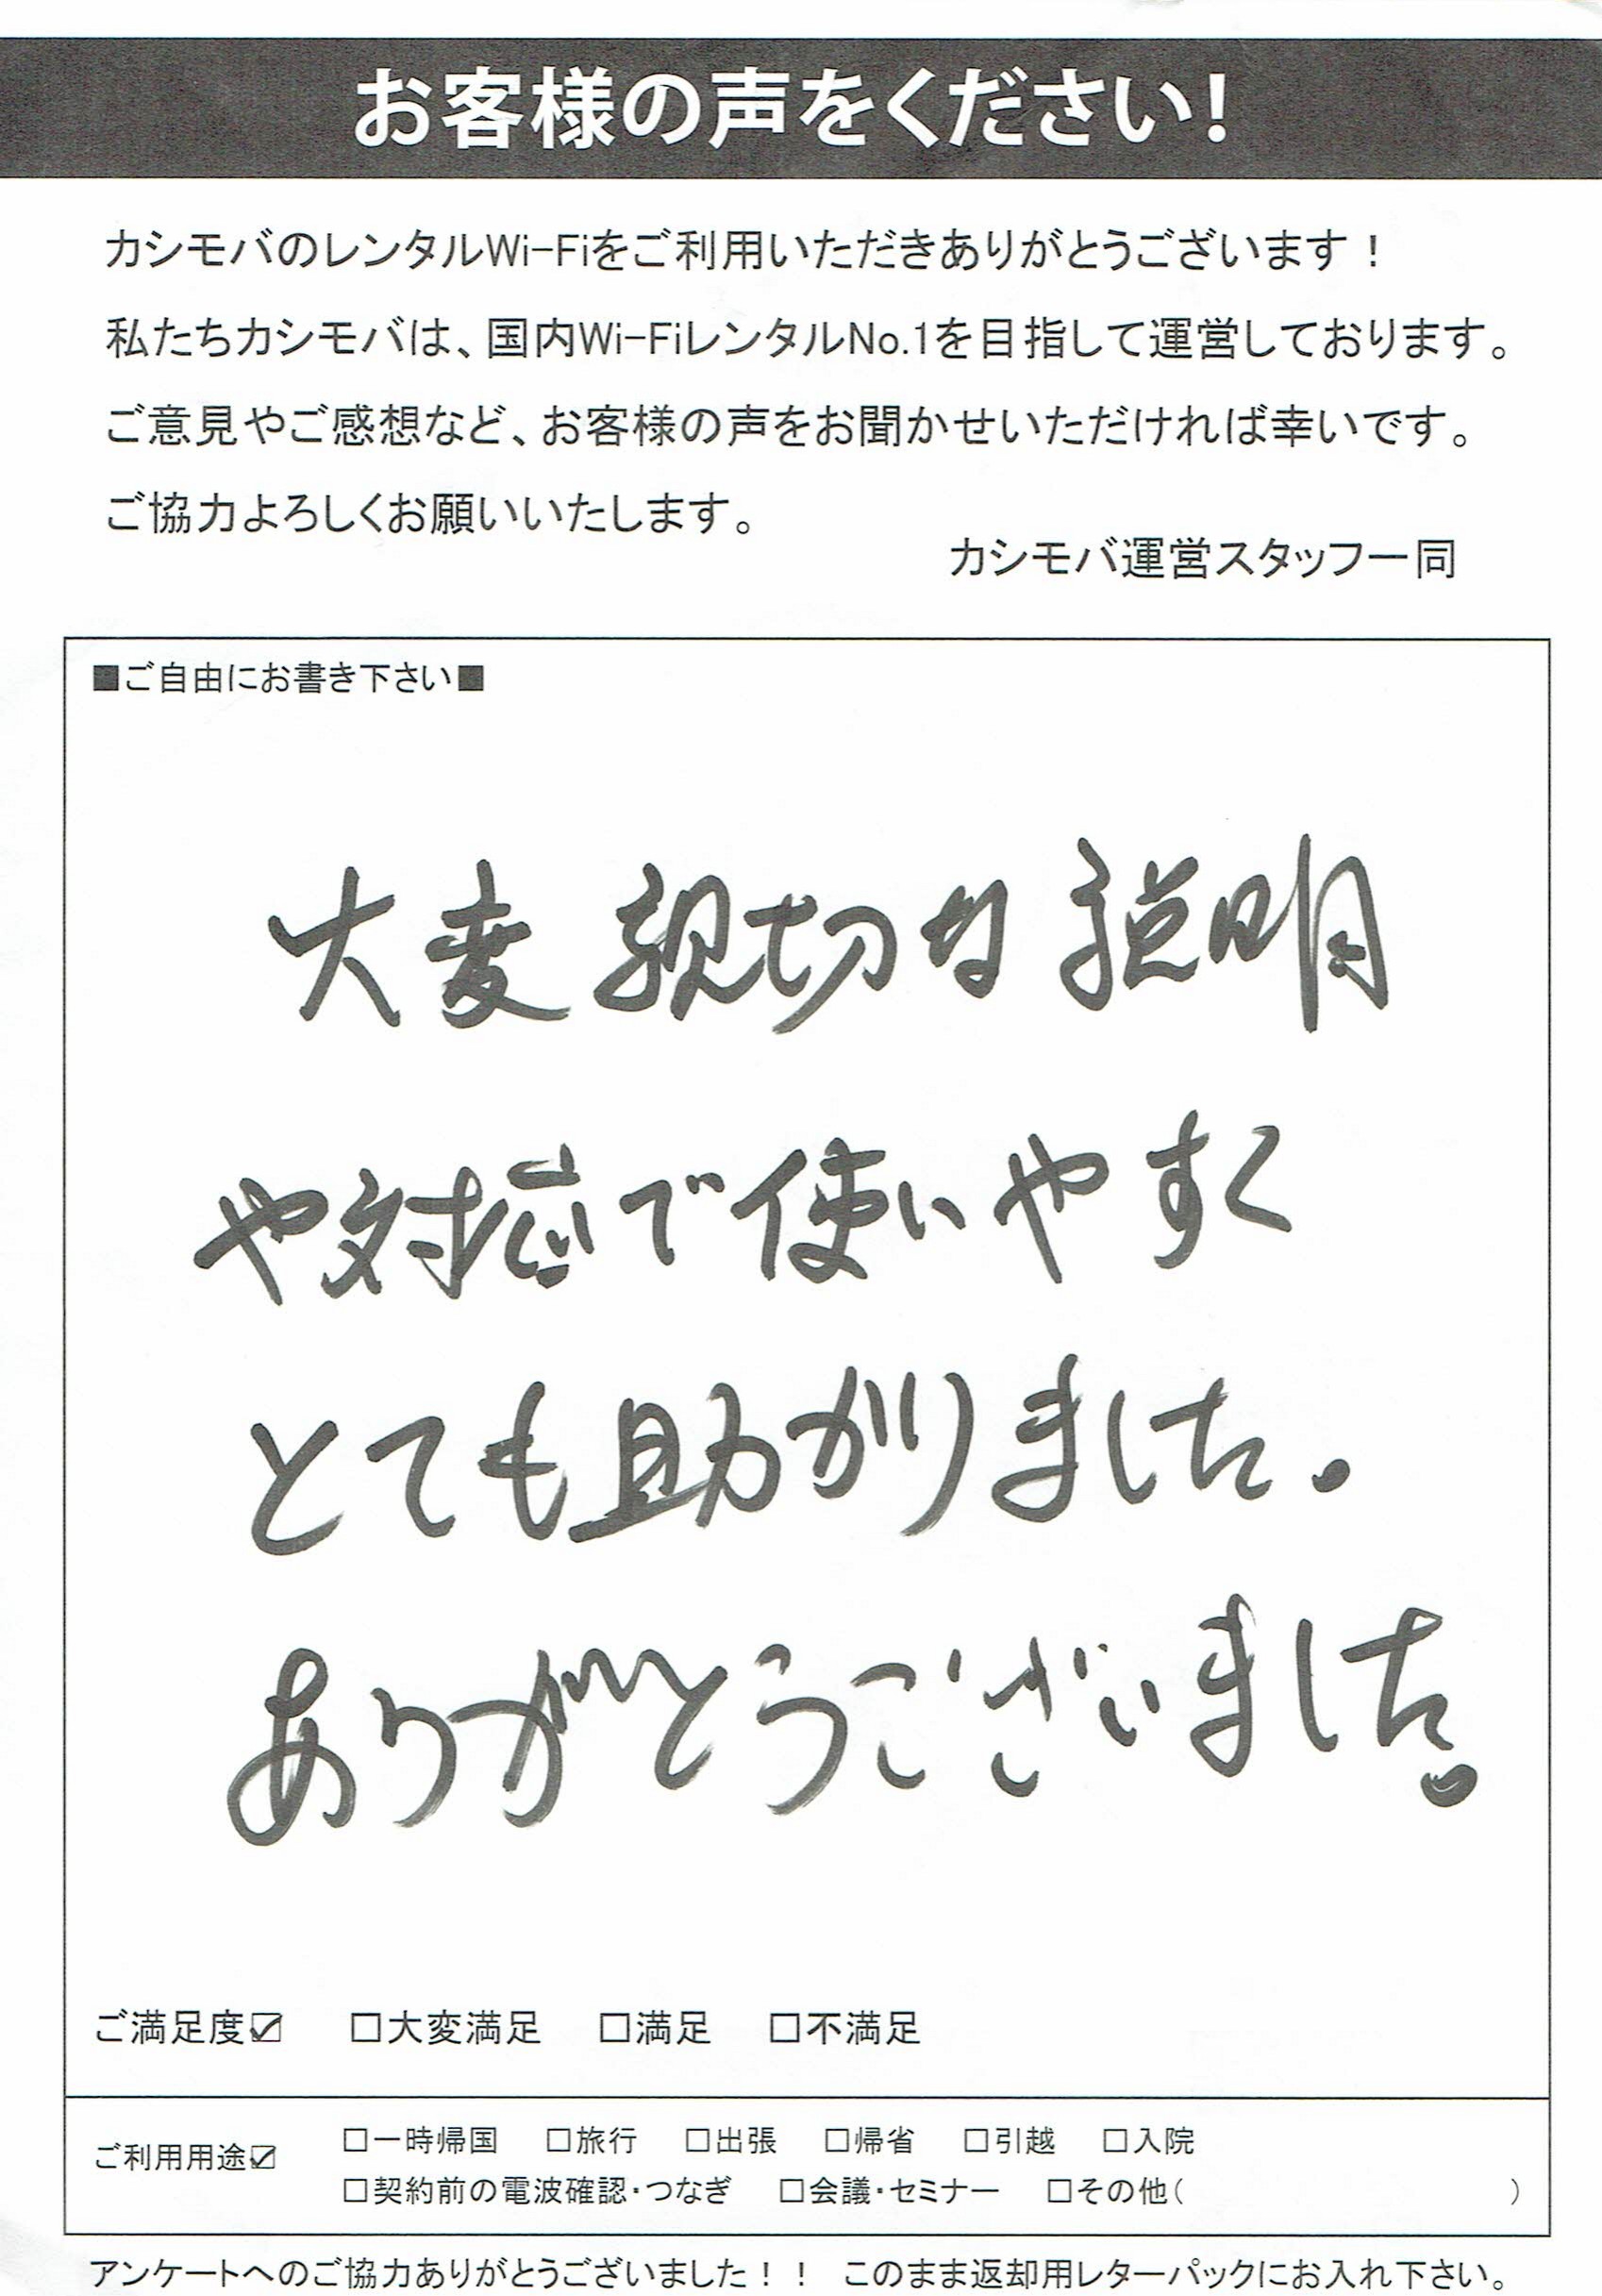 お客様の声をください!
カシモバのレンタルWi-Fiをご利用いただきありがとうございます！
私たちカシモバは、国内Wi-FiレンタルNo.1を目指して運営しております。
ご意見やご感想など、お客様の声をお聞かせいただければ幸いです。
ご協力よろしくお願いいたします。
カシモバ運営スタッフ一同
■ご自由にお書き下さい■
大変親切な説明
や対応で使いやすく
とても助かりました。
ありがとうございました。
ご満足度☑ □大変満足 □満足 □不満足
ご利用用途☑ □一時帰国 □旅行 □出張 □帰省 □引越 □入院
□契約前の電波確認・つなぎ □会議・セミナー □その他( )
アンケートへのご協力ありがとうございました！！ このまま返却用レターパックにお入れ下さい。